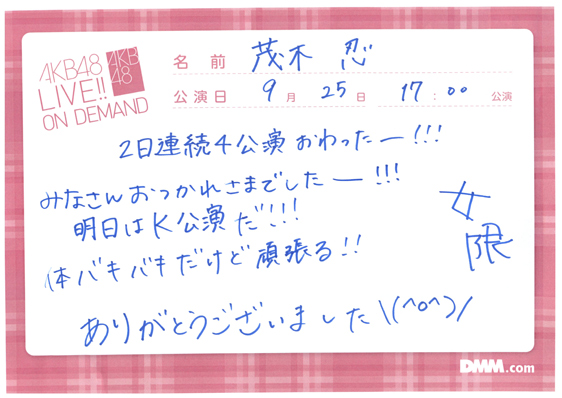 AKB48
LIVE!!
ON DEMAND
AKB
48
名前 茂木 忍
公演日 9月 25日 17:00 公演
2日連続4公演おわったー!!!
みなさんおつかれさまでしたー!!!
明日はK公演だ!!!
体バキバキだけど頑張る!!
女
限
ありがとうございました\(^o^)/
DMM.com